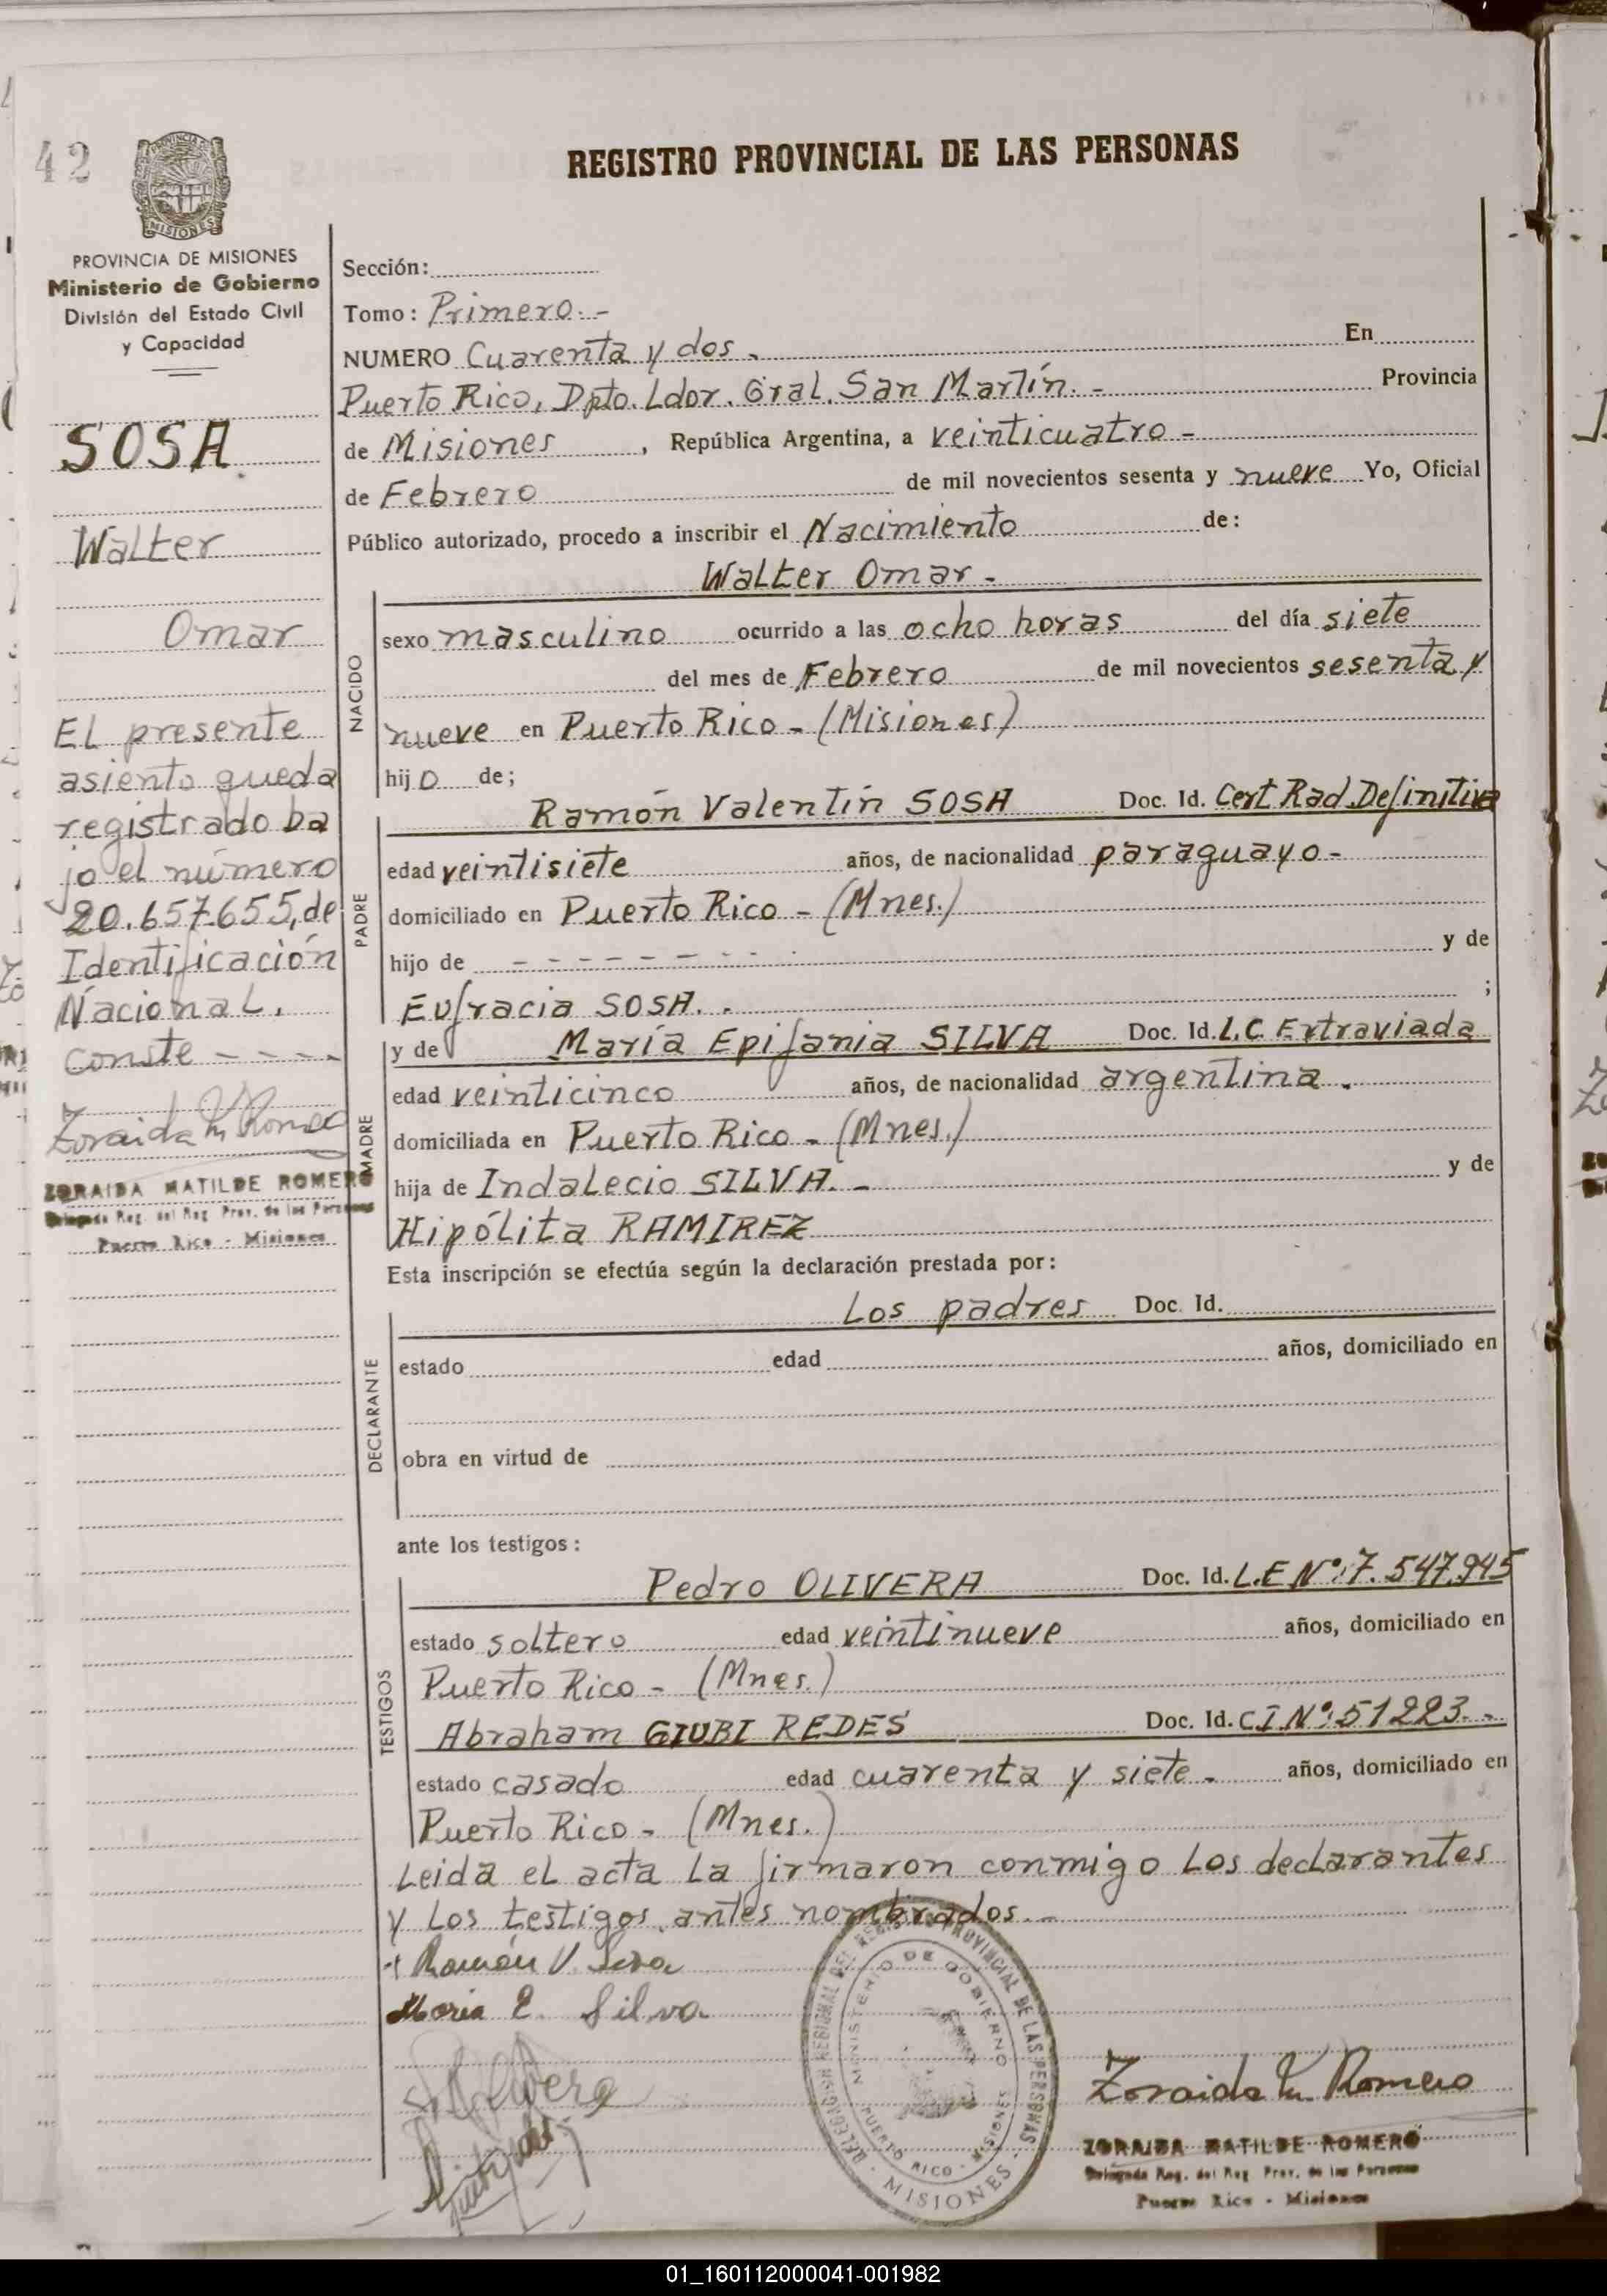 42
REGISTRO PROVINCIAL DE LAS PERSONAS
PROVINCIA DE MISIONES
Ministerio de Gobierno
División del Estado Civil
y Capacidad
SOSA
Walter
Omar
El presente
asiento queda
registrado ba
jo el número
20.657.655, de
Identificación
Nacional.
Conste - - - -
Zoraida M Romero
ZORAIDA MATILDE ROMERO
Delegada Reg. del Reg. Prov. de las Personas
Puerto Rico - Misiones
Sección:
Tomo: Primero.-
NUMERO Cuarenta y dos. En
Puerto Rico, Dpto. Ldor. Gral. San Martín.- Provincia
de Misiones, República Argentina, a veinticuatro -
de Febrero de mil novecientos sesenta y nueve Yo, Oficial
Público autorizado, procedo a inscribir el Nacimiento de:
Walter Omar -
NACIDO
sexo masculino ocurrido a las ocho horas del día siete
del mes de Febrero de mil novecientos sesenta y
nueve en Puerto Rico - (Misiones)
hijo de;
Ramón Valentín SOSA Doc. Id. Cert Rad. Definitiva
PADRE
edad veintisiete años, de nacionalidad paraguayo -
domiciliado en Puerto Rico - (Mnes.)
hijo de - - - - - - - - y de
Eufracia SOSA. - ;
y de María Epifania SILVA Doc. Id. L.C Extraviada
MADRE
edad veinticinco años, de nacionalidad argentina.
domiciliada en Puerto Rico - (Mnes.)
hija de Indalecio SILVA. - y de
Hipólita RAMIREZ
Esta inscripción se efectúa según la declaración prestada por:
Los padres Doc. Id.
DECLARANTE
estado edad años, domiciliado en
obra en virtud de
ante los testigos:
Pedro OLIVERA Doc. Id. L.E Nº: 7.547.945
TESTIGOS
estado soltero edad veintinueve años, domiciliado en
Puerto Rico - (Mnes.)
Abraham GIUBI REDES Doc. Id. C I Nº: 51223. -
estado casado edad cuarenta y siete - años, domiciliado en
Puerto Rico - (Mnes.)
Leida el acta la firmaron conmigo los declarantes
y los testigos antes nombrados. -
Ramón V. Sosa
Maria E. Silva
DELEGACION REGIONAL DEL REGISTRO PROVINCIAL DE LAS PERSONAS
MINISTERIO DE GOBIERNO
PUERTO RICO - MISIONES
- MISIONES -
Zoraida M Romero
ZORAIDA MATILDE ROMERO
Delegada Reg. del Reg. Prov. de las Personas
Puerto Rico - Misiones
01_160112000041-001982